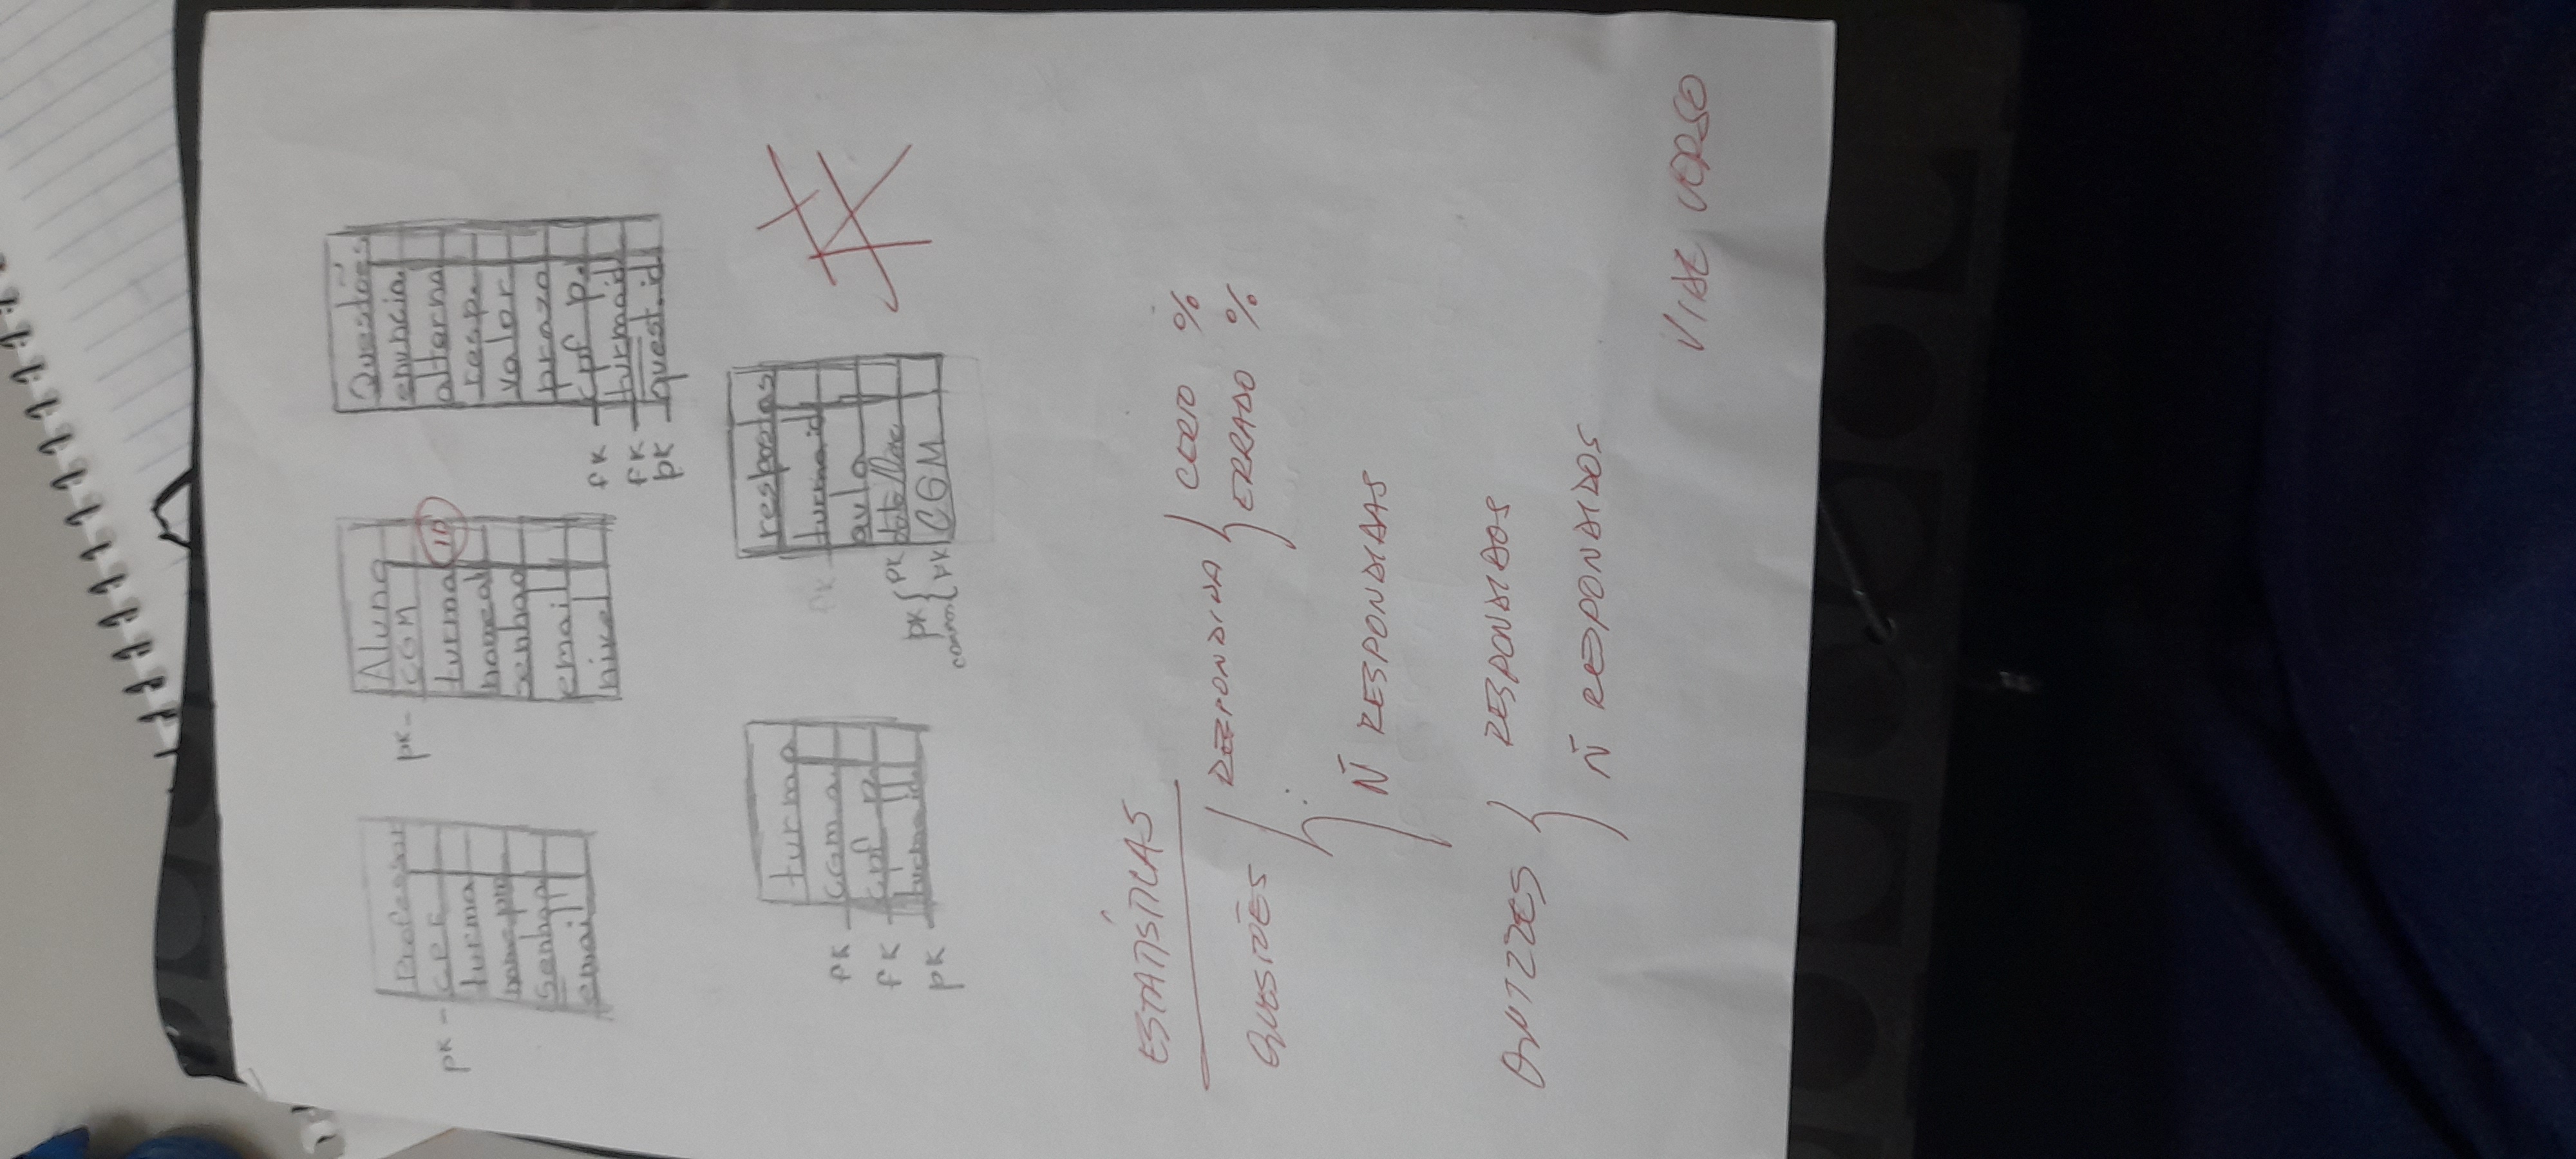 Professor
pk - CPF
turma
nome pro
Senhap
email
Aluno
pk- CGM
turma ID
nomeal
senhaa
email
nivel
Questões
enuncia.
alterna
resp.
valor
prazo
fk cpf p.
fk turmaid
pk quest.id
turma
fk CGM a.
fk cpf p.
pk turma id
respostas
fk turma id
aula
pk
pk CGM
pk
ESTATÍSTICAS
QUESTÕES
RESPONDIDA
CERTO %
ERRADO %
Ñ RESPONDIDAS
QUIZZES
RESPONDIDOS
Ñ RESPONDIDOS
VIDE VERSO